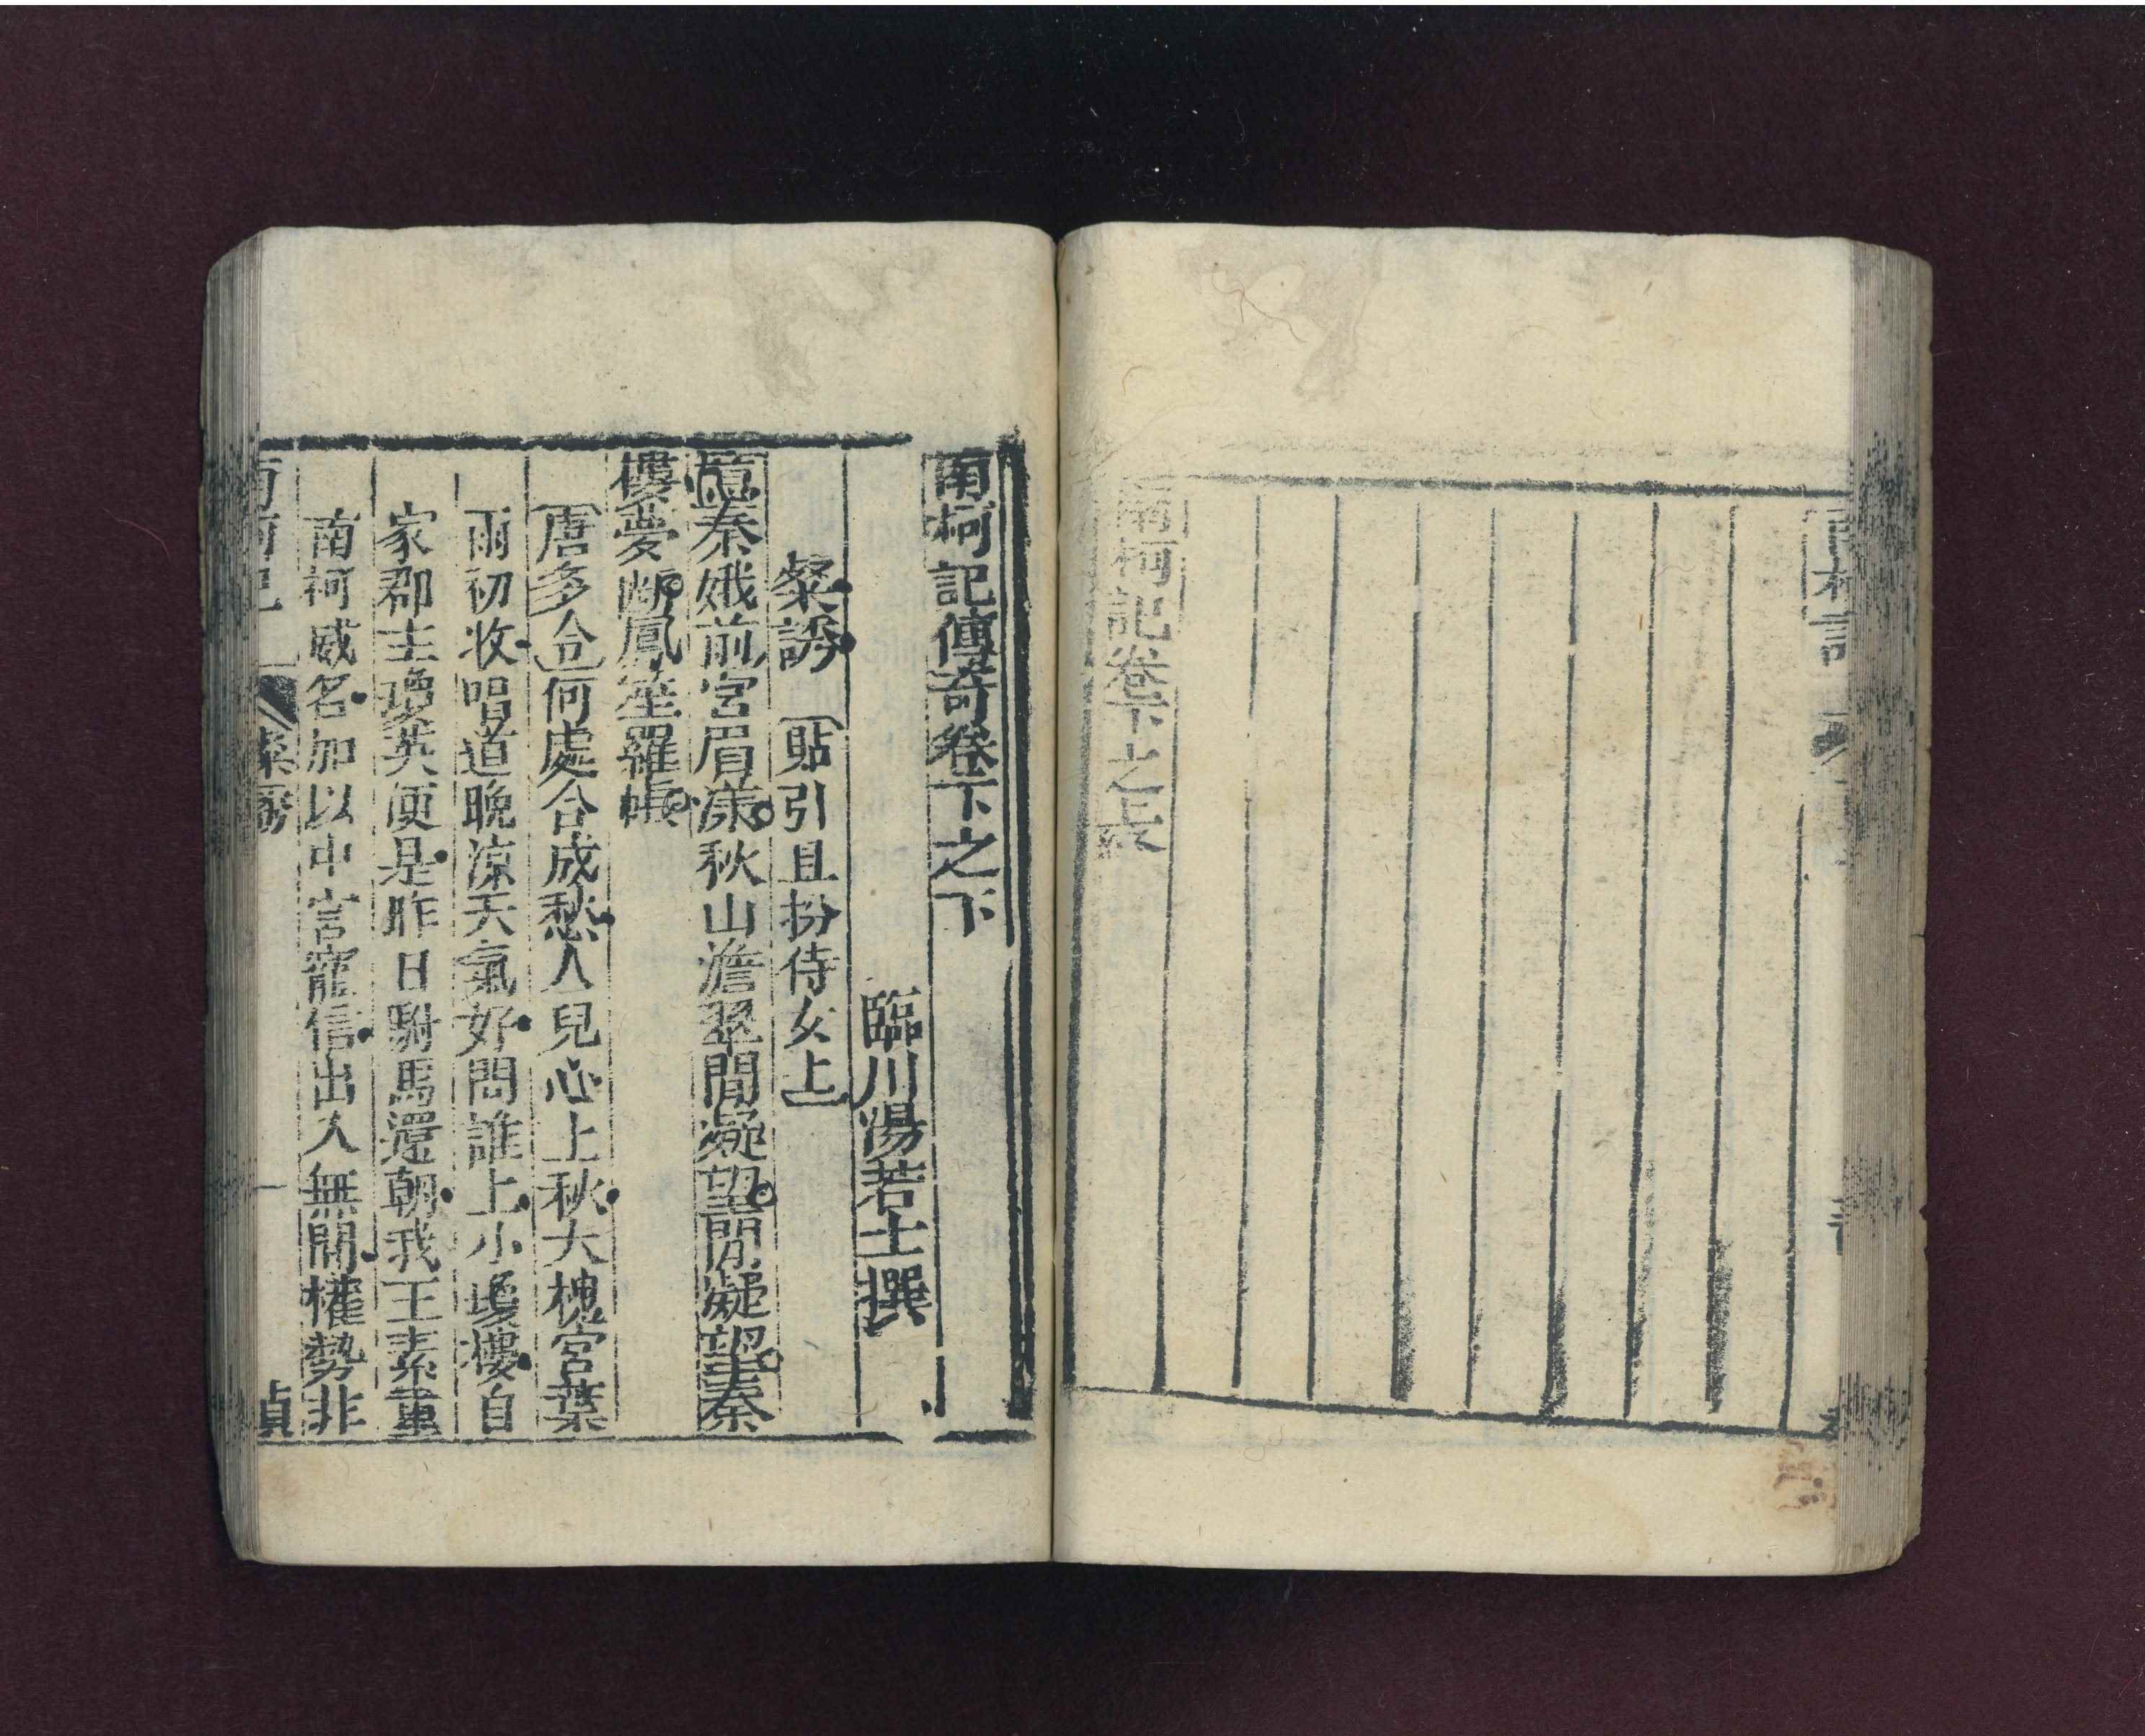 南柯記
南柯記卷下之上終
南柯記傳竒卷下之下
臨川湯若士撰
粲誘 〔貼引且扮侍女上〕
憶秦娥前宮眉漾秋山澹翠間凝望間凝望秦
樓夢斷鳳笙羅帳
〔唐多令〕何處合成愁人兒心上秋大槐宮葉
雨初收唱道晚凉天氣好問誰上小瓊樓自
家郡主瓊英便是昨日駙馬還朝我王素重
南柯威名加以中宮寵信出入無間權勢非
南柯記 粲誘 一 貞